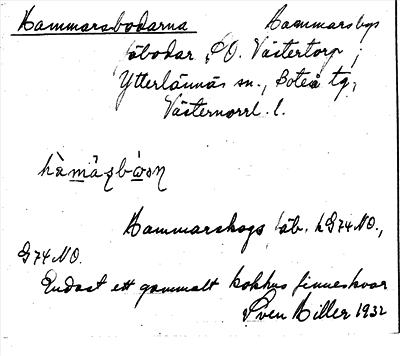 Hammarsbodarna Hammarsbys
fäbodar, SO. Västertorp,
Ytterlännäs sn., Boteå tg,
Västernorrl. l.
Hammarskogs fäb. G74NO.,
G74NO.
Endast ett gammalt kokhus finnes kvar
Sven Hiller 1932